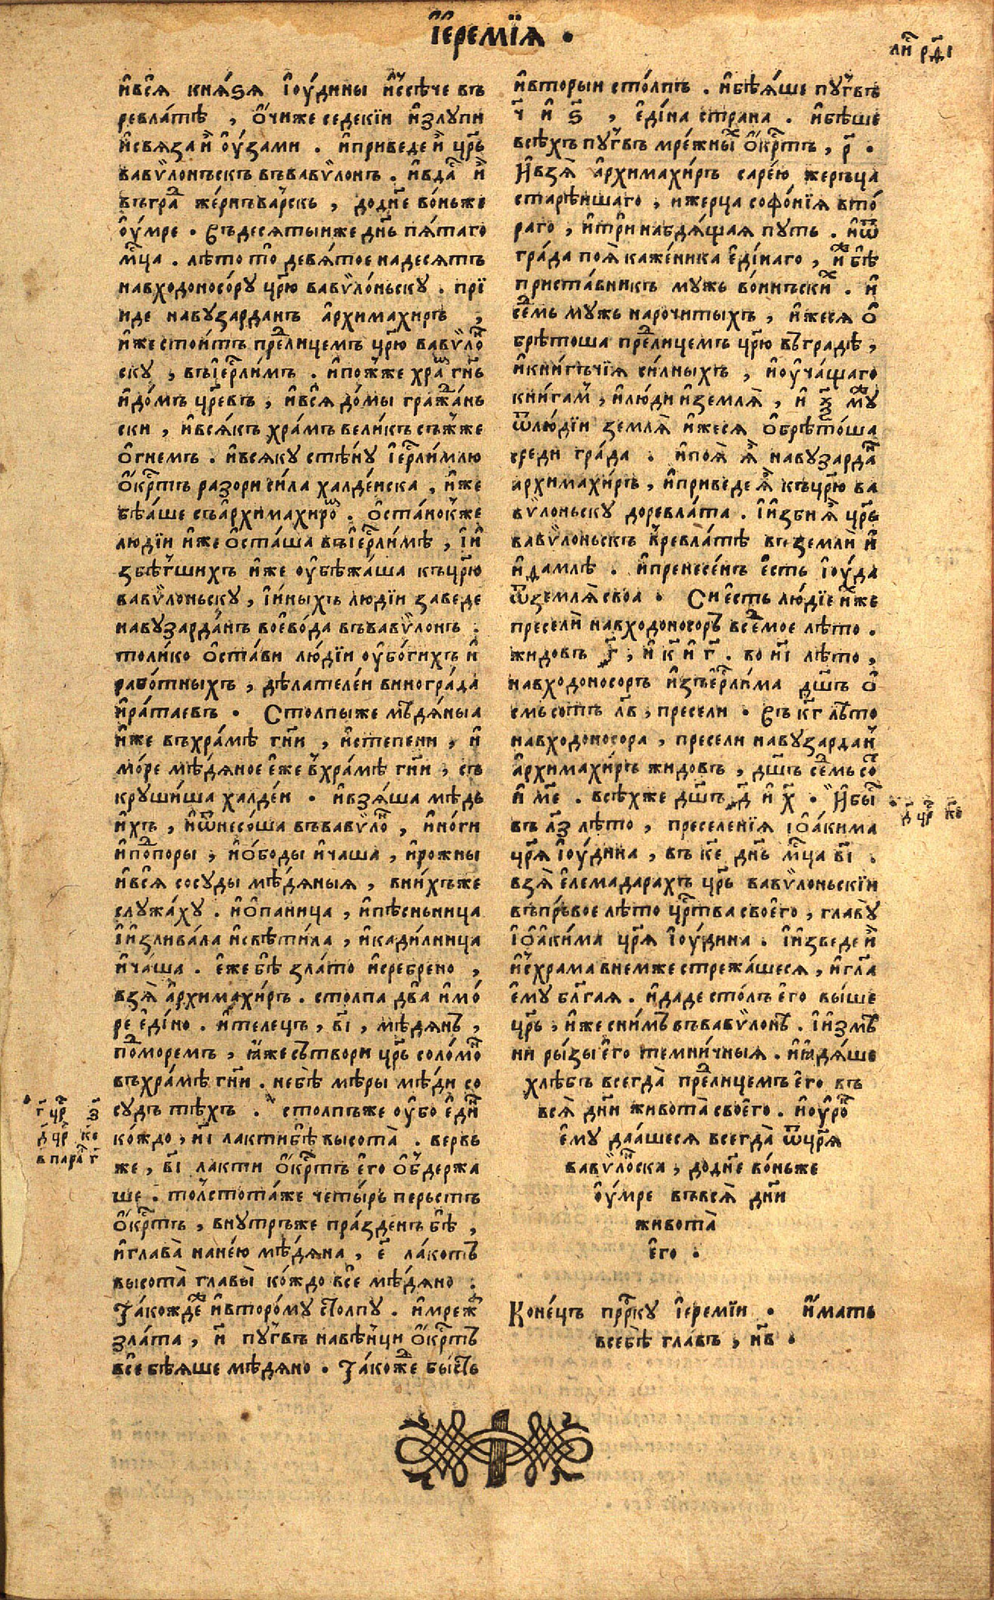 І҆еремїѧ .
ли҇ рд҃і
и҆всѧ̀ кнѧ́ѕѧ І҆ю́дины и҆ссѣ́че въ
ревла́тѣ , о҆́чиже седекїи и҆злупи
и҆свѧза и҆̀ оу҆́зами . и҆приведе и҆̀ цр҃ь
вавѷлоньскъ въвавѷлонъ . и҆вда̀ и҆̀
въгра̀ же́рнъва́рскъ , додн҃е во́ньже
оу҆́мре . Въдесѧты́иже дн҃ь пѧ́таго
мц҃а . лѣто то̀ девѧ́тое надесѧть
навходоносо́ру цр҃ю вавѷло́ньску . прї
иде навузарданъ а҆рхимахи́ръ ,
и҆́же стои́тъ пре́лицемъ цр҃ю вавѷло̀
ску , въіе҆р҇лимъ . и҆пожже хра̀ гн҃ь
и҆до́мъ цр҃евъ , и҆всѧ̀ до́мы гражанъ
ски , и҆всѧкъ хра́мъ великъ съжже
о҆гнемъ . и҆всѧку стѣ́ну і҆ер҇лимлю
о҆́крт҇ъ разори си́ла халде́иска , и҆́же
бѣа́ше съа҆рхимахиро̀ . о҆ста́нокже
люді́и и҆́же о҆ста́ша въіе҆р҇ли́мѣ , і҆и҆
збѣ́гшихъ и҆́же оу҆бѣжа́ша къцр҃ю
вавѷло́ньску , і҆и҆ныхъ люді́и заведе
навузарда́нъ воево́да въвавѷлонъ .
толи́ко о҆ста́ви лю́дїи оу҆бо́гихъ и҆
рабо́тныхъ , дѣ́лателеи виногра́да
и҆ра́таевъ . Столпыже мѣ́дѧныа
и҆́же въхра́мѣ гн҃и , и҆степени , и҆
мо́ре мѣ́дѧное е҆́же в̾хра́мѣ гн҃и , съ
круши́ша халде́и . и҆взѧ́ша мѣ́дь
и҆́хъ , и҆ѿнесо́ша въвавѷло̀ , и҆но́ги
и҆по̀поры , и҆о҆́боды и҆чаша , и҆рожны
и҆всѧ̀ сосу́ды мѣ́дѧныѧ , вни́хъже
служа́ху . и҆о҆паница , и҆пѣсньница
і҆и҆зливала и҆свѣти́ла , и҆кадилница
и҆ча́ша . е҆́же бѣ̀ зла́то и҆сребрено ,
взѧ̀ а҆рхимахи́ръ . столпа два̀ и҆мо́
ре е҆ди́но . и҆телецъ , в҃і , мѣ́дѧнъ ,
по̀моремъ , ꙗ҆́же сътвори цр҃ь соломо̀
въхра́мѣ гн҃и . небѣ̀ мѣ́ры мѣ́ди со
су́дъ тѣ́хъ . столпъже оу҆бо е҆дѝ
ко́ждо , и҃і лактибѣ̀ высота̀ . вервь
же , в҃і лакти о҆́крт҇ъ е҆го о҆бде́ржа
ше . толстота́же четы́рь перьстъ
о҆́крт҇ъ , внутръже пра́зденъ бѣ̀ ,
и҆глава̀ нане́ю мѣ́дѧна , е҃ ла́котъ
высота̀ главы̀ ко́ждо всѐ мѣ́дѧно .
Та́кожде и҆второ́му столпу . и҆мреж
зла́та , и҆ пугвъ навѣнци о҆́крт҇ъ
всѐ бѣ́ѧше мѣ́дѧно . Та́коже бысть
г҃ цр҇ з҃
д҃ цр҇ ке
в пара̀ г҃
и҆вторыи сто́лпъ . и҆бѣ́ѧше пу́гвъ
ч҃ и҆ ѕ҃ , е҆ди́на страна . и҆бѣ́ше
всѣ́хъ пу́гвъ мре́жны̀ о҆́крт҇ъ , р҃ .
И҆взѧ̀ а҆рхимахи́ръ саре́ю жеръца
старѣ́ишаго , ижерца софо́нїѧ вто́
раго , и҆три набдѧ́щаѧ пу́ть . и҆ѿ
гра́да поѧ̀ каже́ника е҆ди́наго , и҆́ бѣ̀
приста́вникъ мужь во́инъскѝ . и҆
се́мь му́жь нарочи́тыхъ , и҆́жесѧ о҆
брѣ́тоша пре́лицемъ цр҃ю въгра́дѣ ,
и҆кни́гъчїѧ си́лныхъ , и҆оу҆ча́щаго
кни́гам , и҆лю́ди и҆землѧ̀ , и҆ ѯ҃ му
ѿлюді́и землѧ̀ и҆жесѧ о҆брѣто́ша
среди гра́да . и҆поѧ̀ ѧ҆̀ навузарда̀
архимахи́ръ , и҆приведе ѧ҆̀ къцр҃ю ва
вѷлоньску доревла́та . І҆и҆зби ѧ҆̀ цр҃ь
вавѷло́ньскъ в̾ревла́тѣ въземлѝ и҆
и҆да́млѣ . и҆пренесе́нъ е҆сть і҆ю́да
ѿземлѧ̀ своа . Си́ есть лю́дїе и҆́же
пресели навходоносоръ все́мое лѣ́то .
жидовъ ҂г҃ , и҆ к҃ и҆ г҃ . во и҃і лѣто ,
навходоносоръ и҆зъіе҆р҇ли́ма дш҃ъ о҆
смьсотъ л҃в , пресели . Въ к҃г лѣто
навходоносора , пресели навузардан
а҆рхимахи́ръ жидовъ , дш҃ъ се́мь со̀
и҆ м҃е . всѣ́хже дш҃ъ ҂д҃ и҆ х҃ . И҆ бы̀
въ л҃з лѣто , преселенїѧ і҆оа҆кима
цр҃ѧ І҆ю́дина , въ к҃е дн҃ь мц҃а в҃і .
взѧ̀ е҆лемадарахъ цр҃ь вавѷлоньскїи
въпръвое лѣ́то цр҇тва свое́го , главу̀
І҆оа҆кима цр҃ѧ І҆ю́дина . І҆и҆зведе и҆̀
и҆схрама внемже стрежа́шесѧ , и҆гл҃а
е҆му бл҃га́ѧ . и҆даде сто́лъ е҆го вы́ше
цр҃ь , и҆́же сни́мъ въвавѷло́нѣ . І҆и҆змѣ
ни ри́зы е҆го темни́чныѧ . и҆ꙗ҆дѧ́ше
хлѣ́бъ всегда̀ пре́лицемъ е҆го въ
всѧ̀ дн҃и живота̀ свое́го . и҆оу҆ро̀
е҆му даа́шесѧ всегда̀ ѿцр҃ѧ
вавѷло̀ска , додн҃е во́ньже
оу҆́мре въвсѧ̀ дн҃и
живота̀
е҆го .
д҃ цр҇ ке
Коне́цъ прр҇ку і҆еремїи . и҆́мать
всебѣ̀ главъ , н҃в .